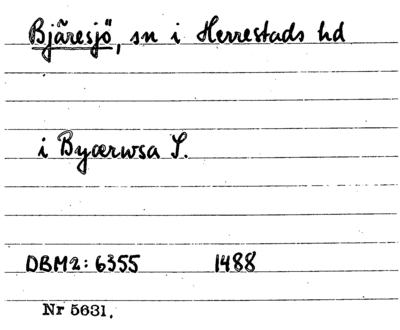 Bjäresjö, sn i Herrestads hd
i Byærwsa S.
DBM2: 6355 1488
Nr 5631.